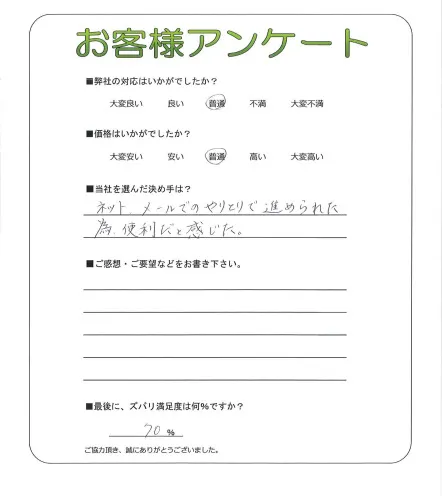 お客様アンケート
■弊社の対応はいかがでしたか？
大変良い 良い 普通 不満 大変不満
■価格はいかがでしたか？
大変安い 安い 普通 高い 大変高い
■当社を選んだ決め手は？
ネット、メールでのやりとりで進められた
為、便利だと感じた。
■ご感想・ご要望などをお書き下さい。
■最後に、ズバリ満足度は何%ですか？
70 %
ご協力頂き、誠にありがとうございました。